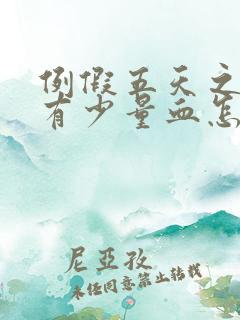 例假五天之
有少量血怎
尼亞孜
未经同意禁止转载